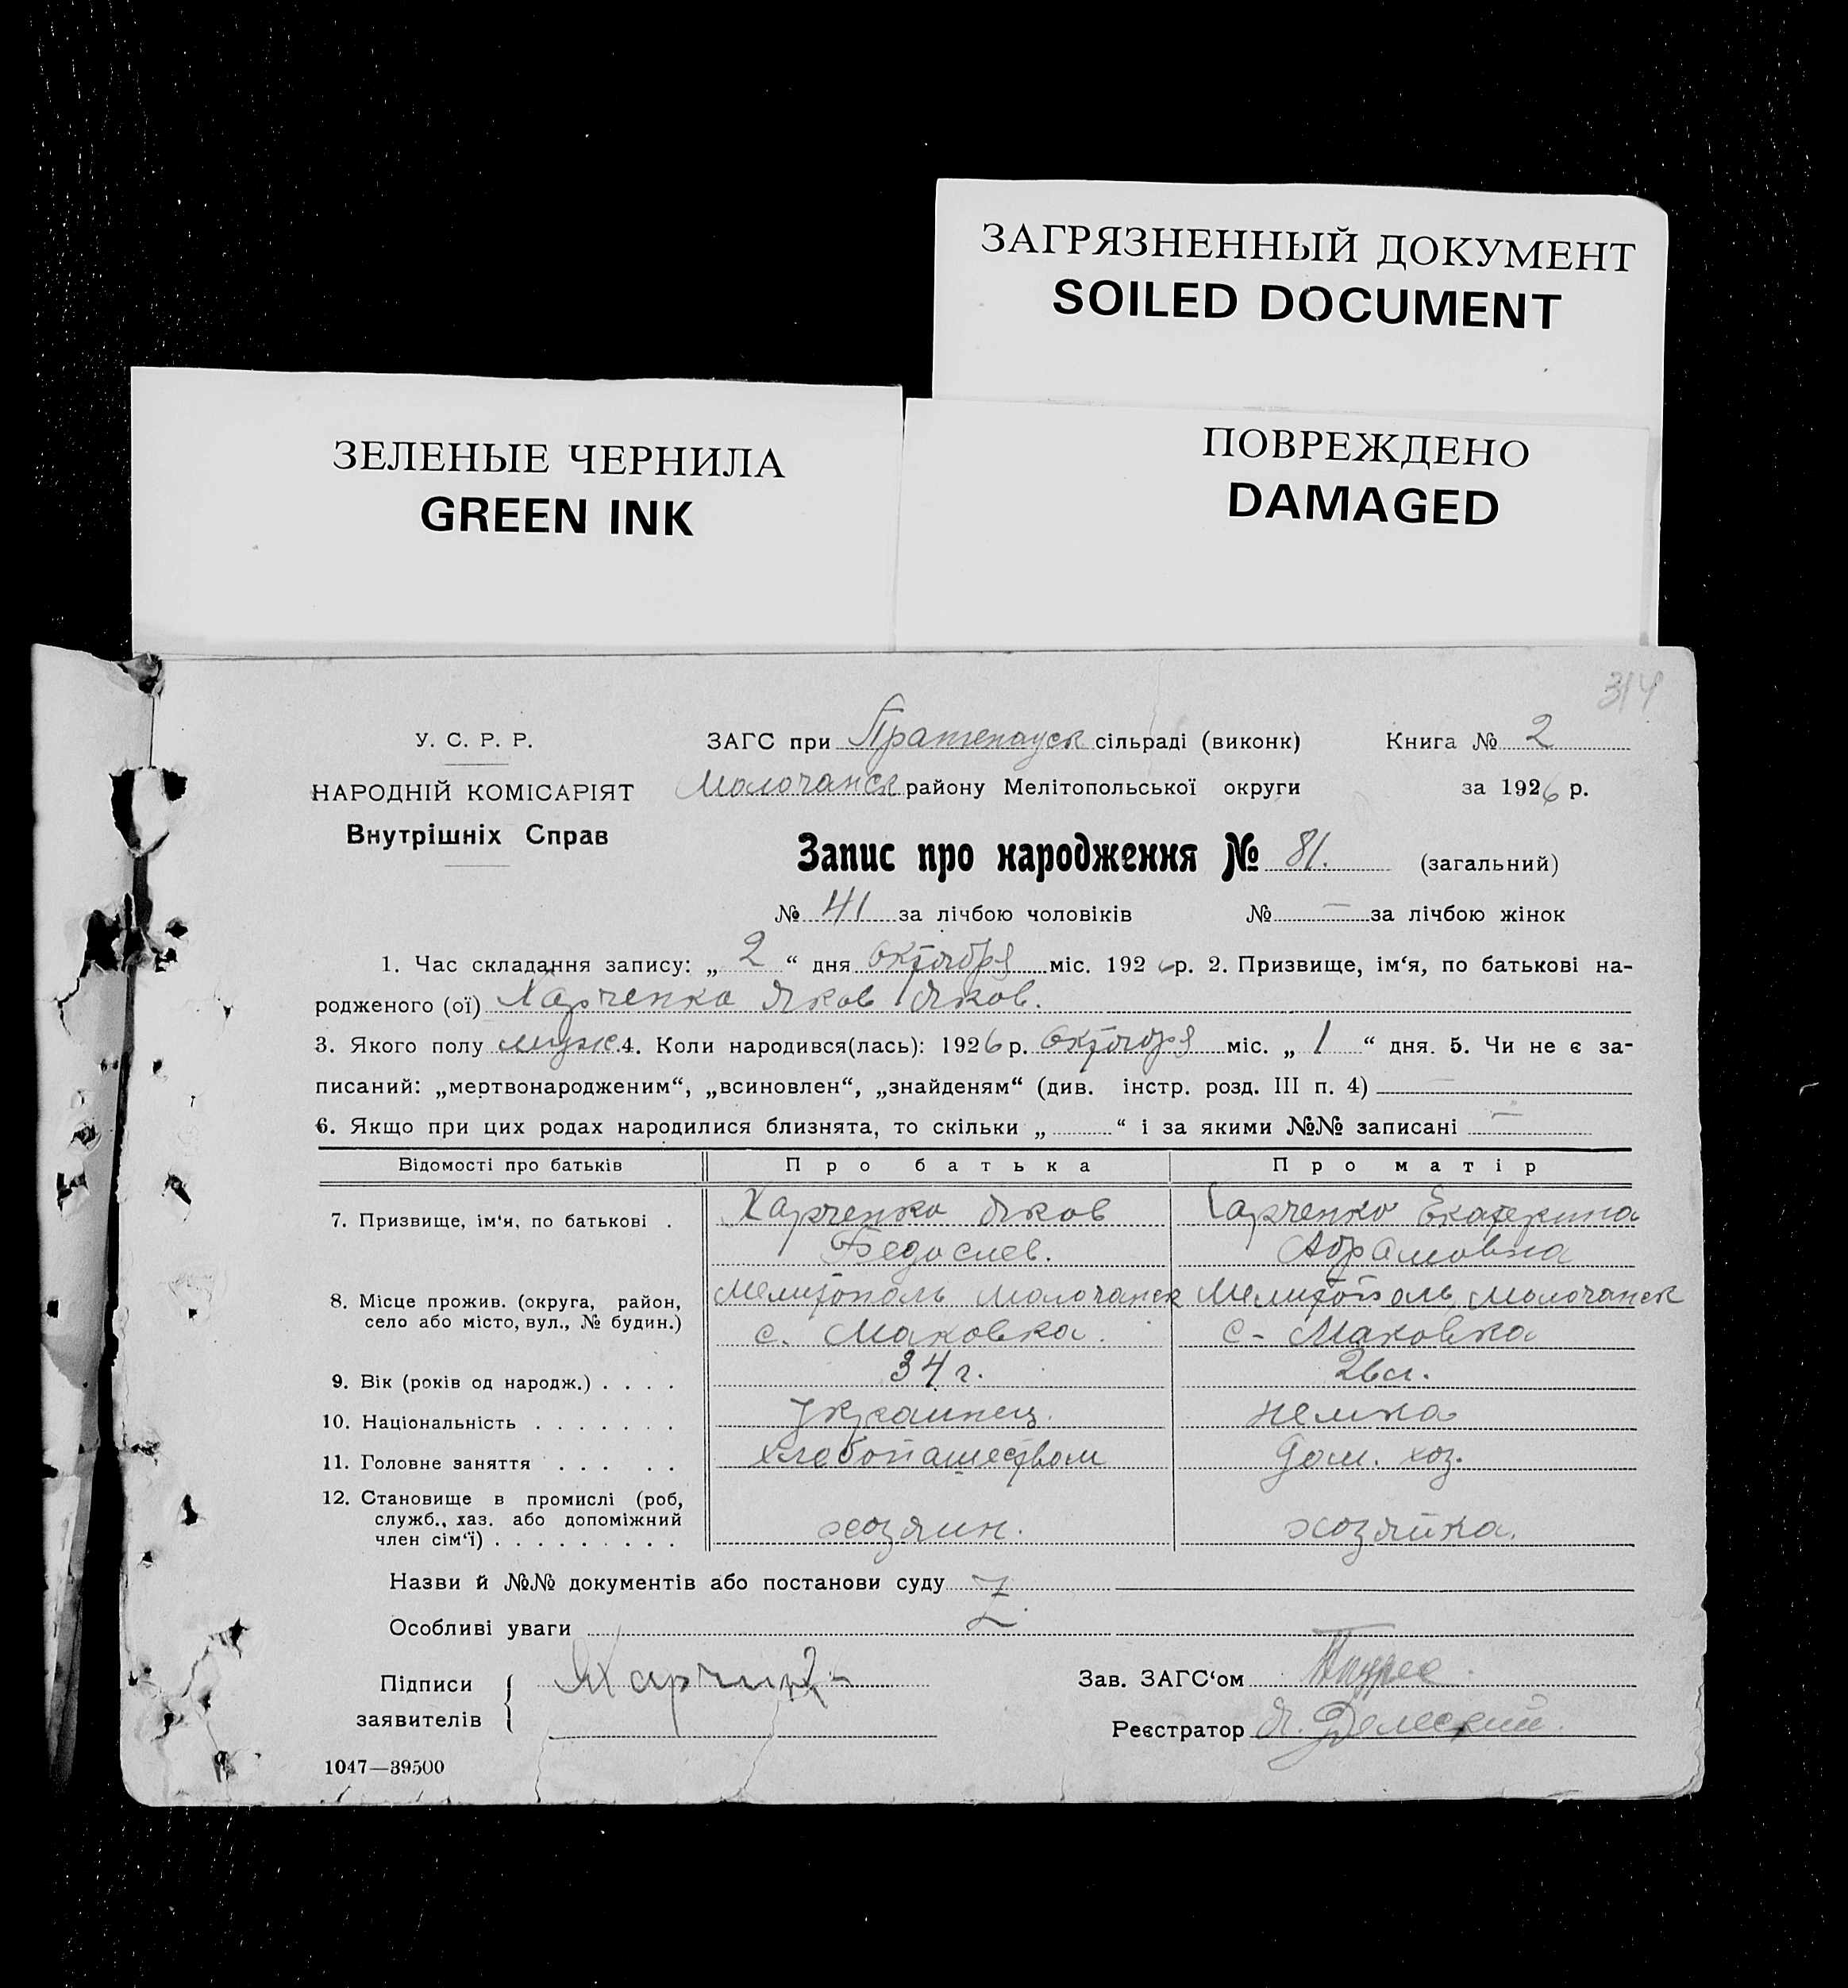 ЗАГРЯЗНЕННЫЙ ДОКУМЕНТ
SOILED DOCUMENT
ЗЕЛЕНЫЕ ЧЕРНИЛА
GREEN INK
ПОВРЕЖДЕНО
DAMAGED
314
У. С. Р. Р.
НАРОДНІЙ КОМІСАРІЯТ
Внутрішніх Справ
ЗАГС при сільраді (виконк) Книга № 2
Молочанск району Мелітопольської округи за 1926 р.
Запис про народження № 81. (загальний)
№ 41 за лічбою чоловіків № — за лічбою жінок
1. Час складання запису: „ 2 “ дня октября міс. 1926 р. 2. Призвище, ім‘я, по батькові на-
родженого (ої) Харченко Яков Яков.
3. Якого полу муж. 4. Коли народився(лась): 1926 р. октября міс. „ 1 “ дня. 5. Чи не є за-
писаний: „мертвонародженим“, „всиновлен“, „знайденям“ (див. інстр. розд. III п. 4) —
6. Якщо при цих родах народилися близнята, то скільки „ “ і за якими №№ записані —
Відомості про батьків Про батька Про матір
7. Призвище, ім‘я, по батькові . Харченко Яков Харченко Екатерина
Абрамовна
8. Місце прожив. (округа, район, село або місто, вул., № будин.) Мелитополь Молочанск Мелитополь Молочанск
с. Маковка. с- Маковка
9. Вік (років од народж.) . . . . 34 г. 26 л.
10. Національність . . . . . . . Украинец. немка
11. Головне заняття . . . . . хлебопашеством дом. хоз.
12. Становище в промислі (роб, служб., хаз. або допоміжний член сім‘ї) . . . . . . . . . хозяин. хозяйка.
Назви й №№ документів або постанови суду
Особливі уваги
Підписи заявителів
Зав. ЗАГС‘ом
Реєстратор
1047—39500